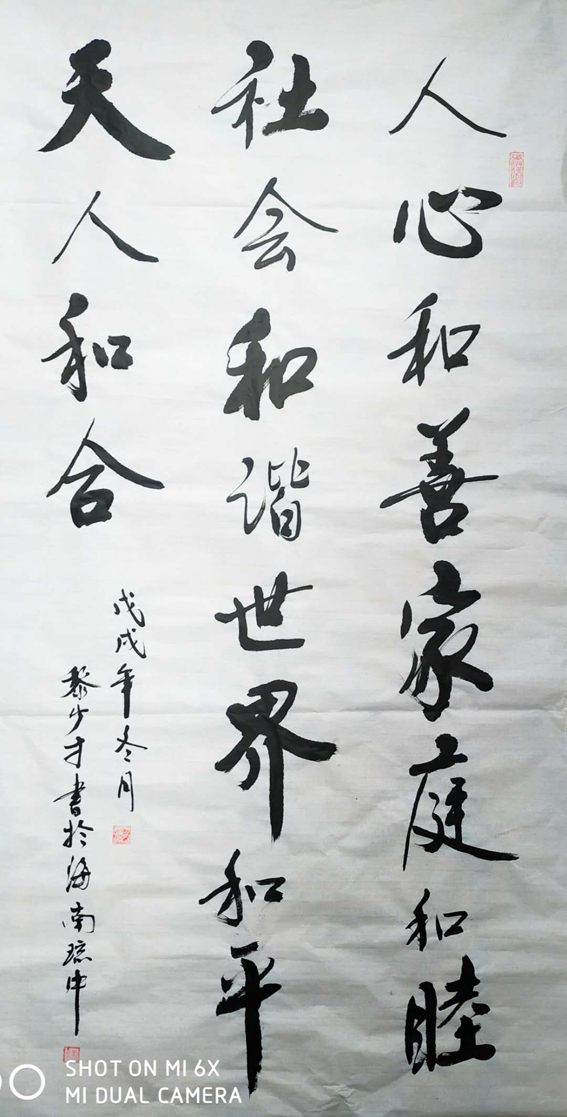 人心和善家庭和睦
社会和谐世界和平
天人和合
戊戌年冬月
黎少才書於海南琼中
SHOT ON MI 6X
MI DUAL CAMERA